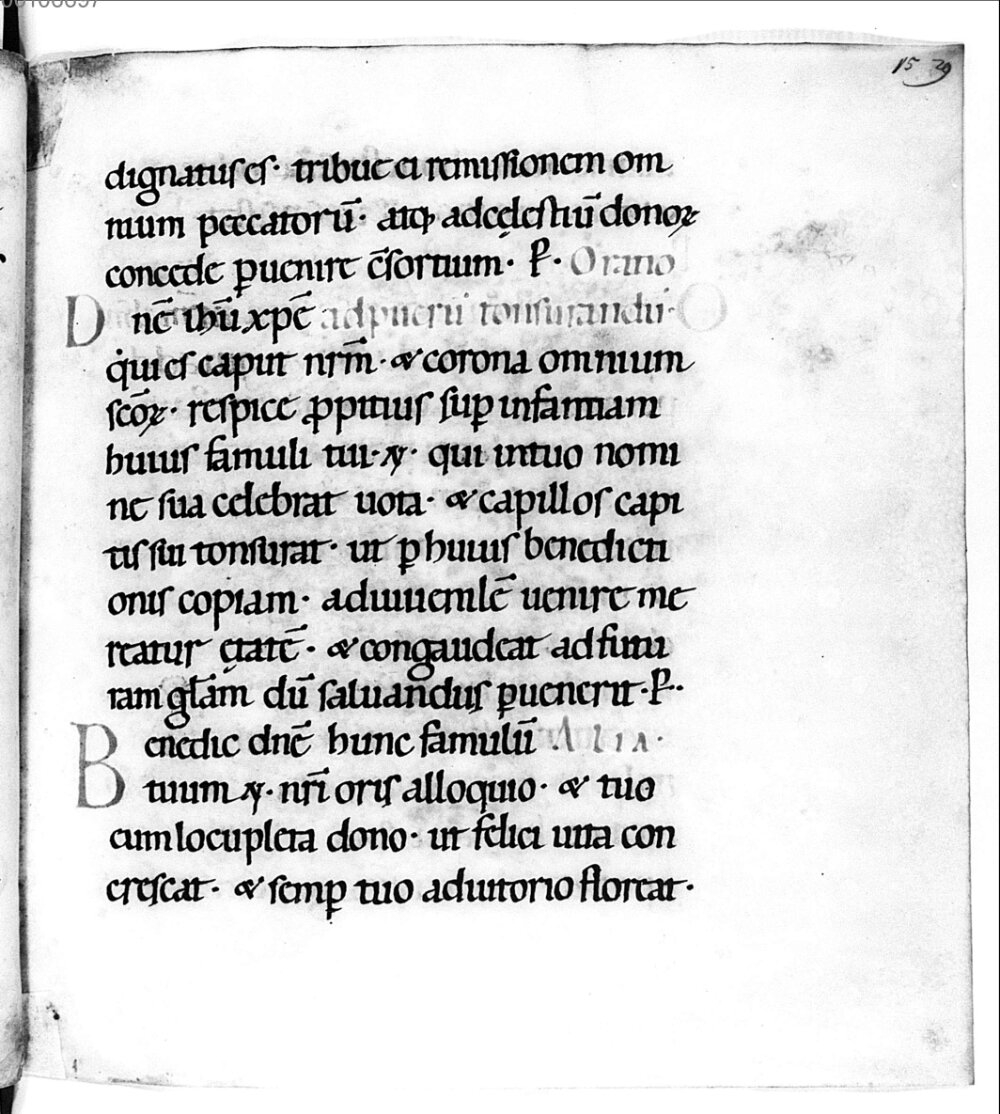 15 29
dignatuſ eſ· tribue ei remiſſionem om
nium peccatorū· atq; ad cęleſtiū donoꝝ
concede ꝑuenire c̄ſortium· P̲· Oratio
Dn̄e ih̄u xp̄e ad pueru tonsurandu·
qui eſ caput nr̄m· & corona omnium
ſcōꝝ· reſpice ꝓpitiuſ ſuꝑ infantiam
huiuſ famuli tui· N· qui in tuo nomi
ne ſua celebrat uota· & capilloſ capi
tiſ ſui tonſurat· ut ꝑ huiuſ benedicti
oniſ copiam· ad iuuenilē uenire me
reatur ętatē· & congaudeat ad futu
ram gl̄am dū ſaluanduſ ꝑuenerit· P̲·
Benedic dn̄e hunc famulū Alia·
tuum N· nr̄i oriſ alloquio· & tuo
cum locupleta dono· ut felici uita con
creſcat· & ſemꝑ tuo adiutorio floreat·